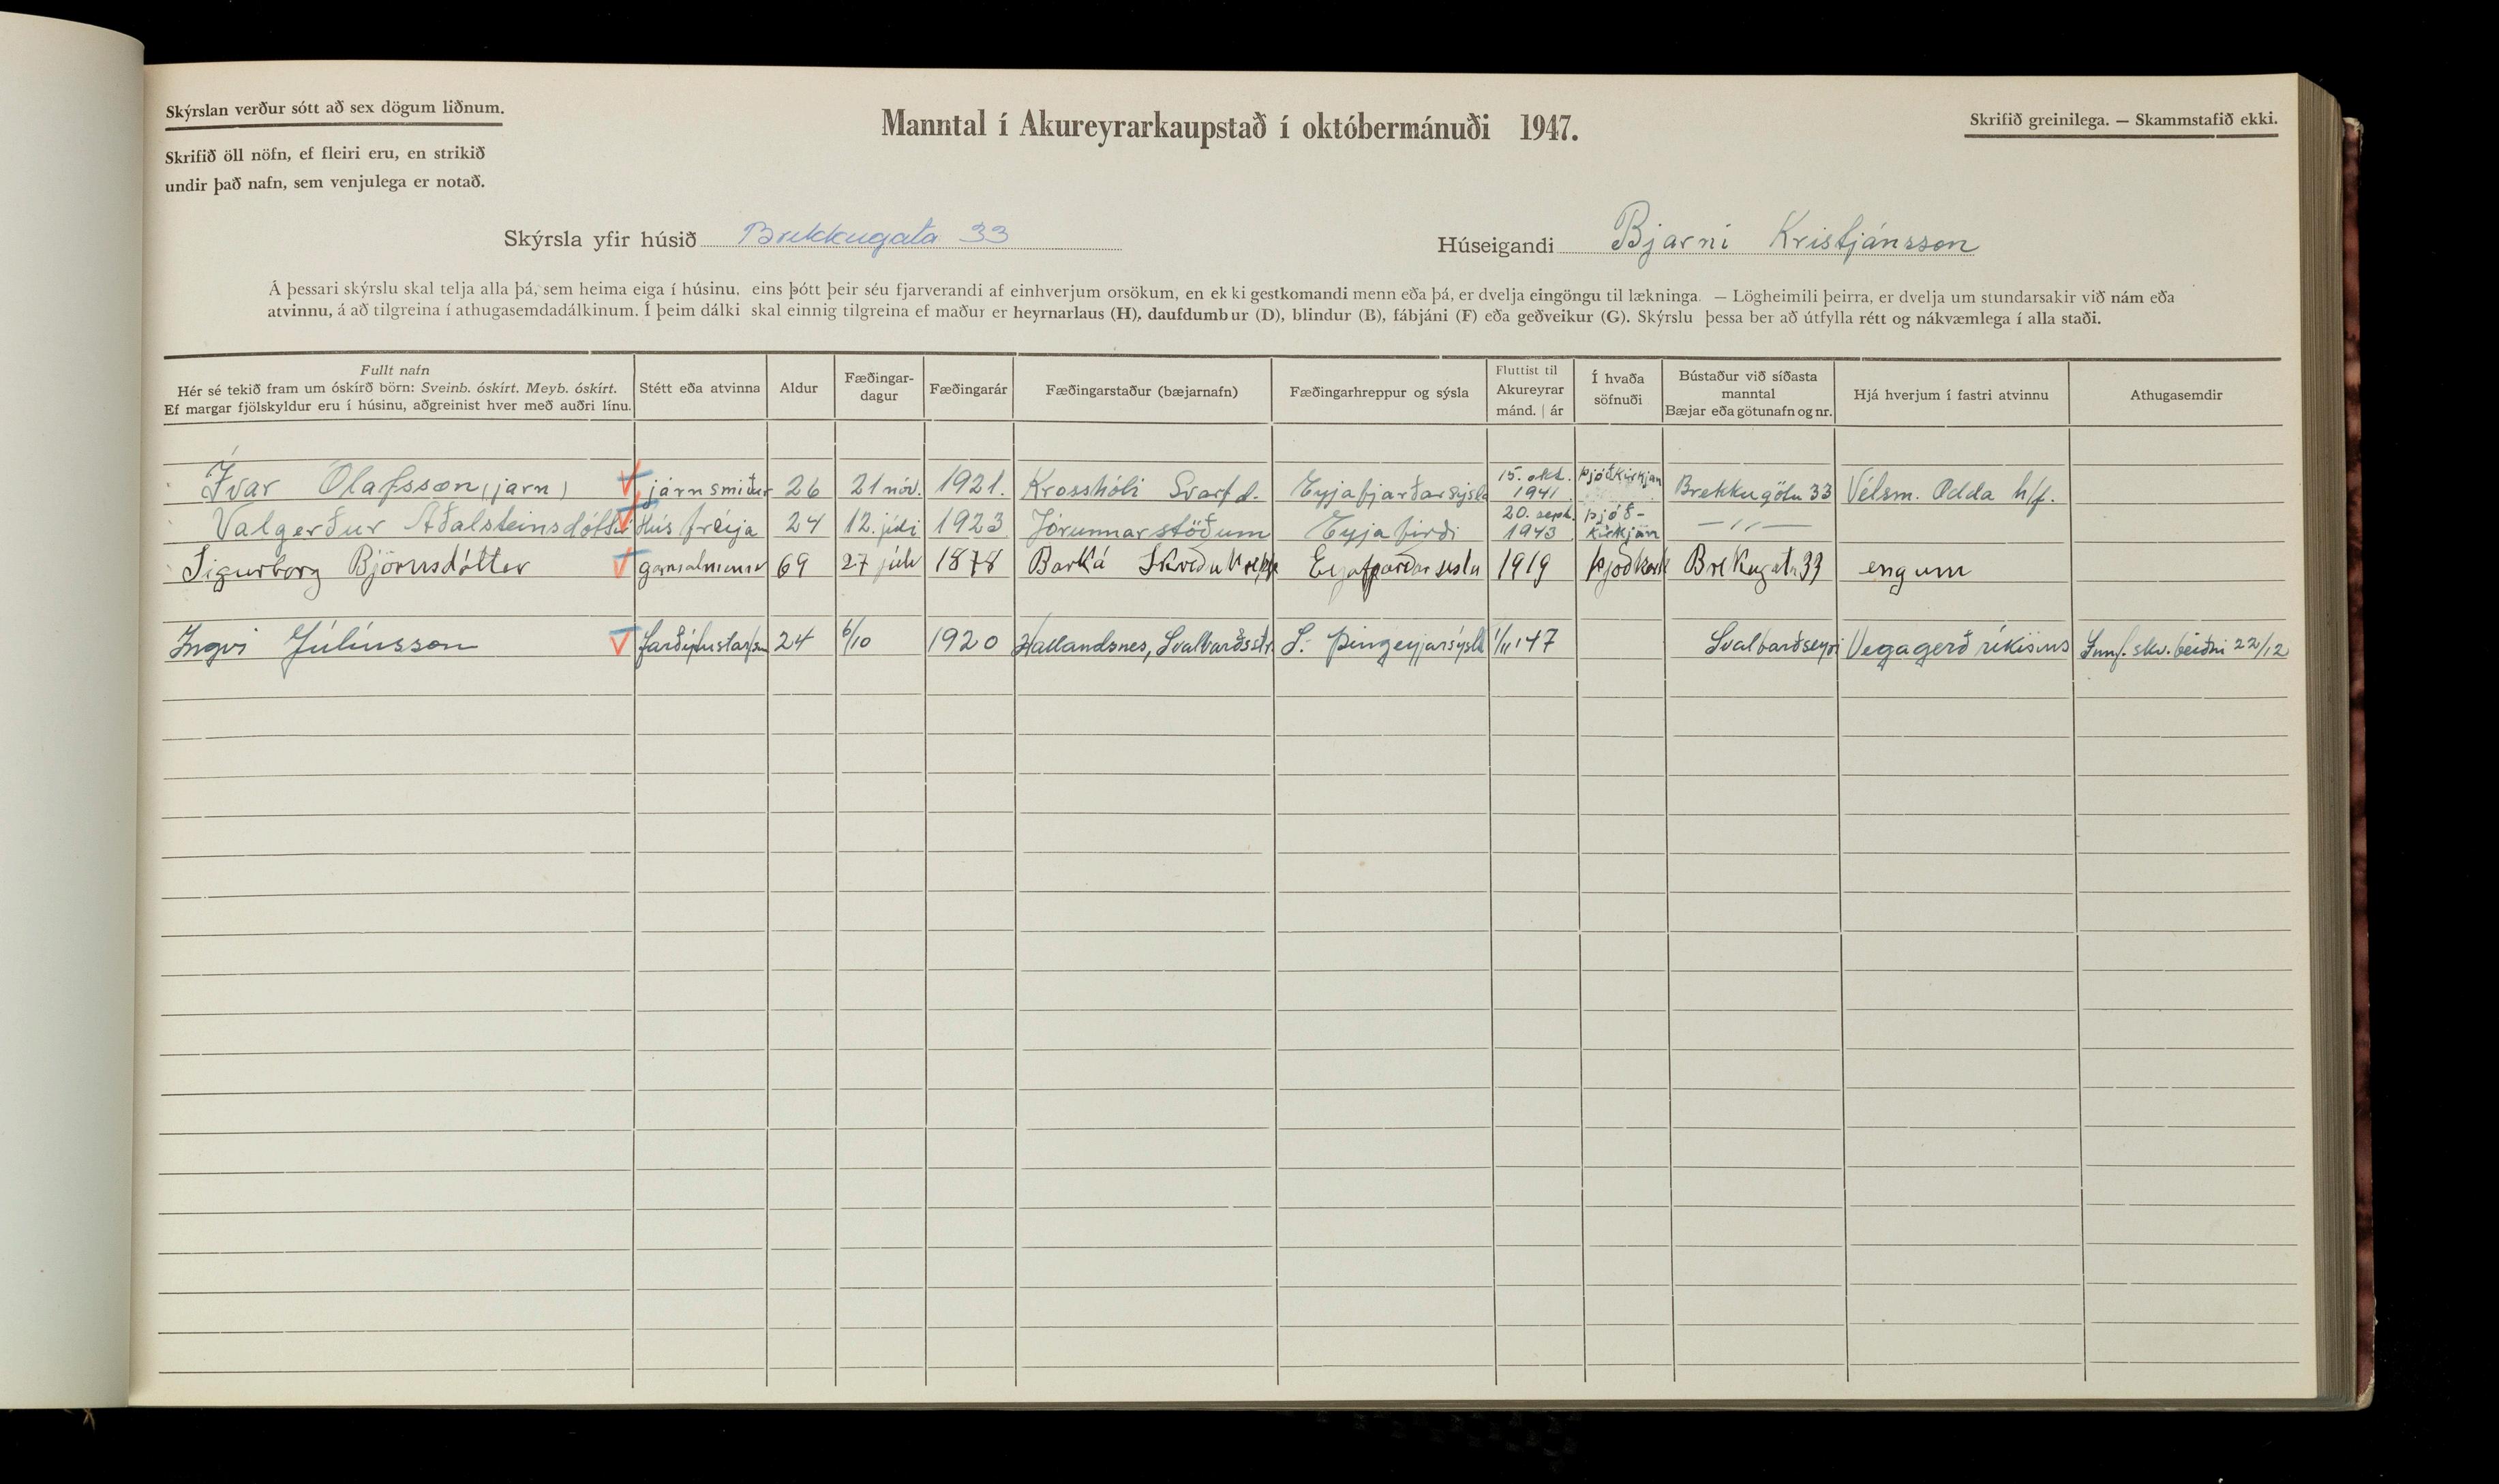 Skýrslan verður sótt að sex dögum liðnum.
Manntal í Akureyrarkaupstað í októbermánuði 1947.
Skrifið greinilega. — Skammstafið ekki.
Skrifið öll nöfn, ef fleiri eru, en strikið
undir það nafn, sem venjulega er notað.
Skýrsla yfir húsið Brekkugata 33
Húseigandi Bjarni Kristjánsson
Á þessari skýrslu skal telja alla þá, sem heima eiga í húsinu, eins þótt þeir séu fjarverandi af einhverjum orsökum, en ekki gestkomandi menn eða þá, er dvelja eingöngu til lækninga. — Lögheimili þeirra, er dvelja um stundarsakir við nám eða
atvinnu, á að tilgreina í athugasemdadálkinum. Í þeim dálki skal einnig tilgreina ef maður er heyrnarlaus (H), daufdumbur (D), blindur (B), fábjáni (F) eða geðveikur (G). Skýrslu þessa ber að útfylla rétt og nákvæmlega í alla staði.
Fullt nafn
Hér sé tekið fram um óskírð börn: Sveinb. óskírt. Meyb. óskírt.
Ef margar fjölskyldur eru í húsinu, aðgreinist hver með auðri línu.
Stétt eða atvinna
Aldur
Fæðingar-
dagur
Fæðingarár
Fæðingarstaður (bæjarnafn)
Fæðingarhreppur og sýsla
Fluttist til
Akureyrar
mánd. | ár
Í hvaða
söfnuði
Bústaður við síðasta
manntal
Bæjar eða götunafn og nr.
Hjá hverjum í fastri atvinnu
Athugasemdir
Ívar Ólafsson (jarn) járnsmiður 26 21 nóv. 1921. Krosshóli Svarfd. Eyjafjarðarsýsla 15. okt. 1941 Þjóðkirkjan Brekkugötu 33 Vélsm. Odda h/f.
Valgerður Aðalsteinsdóttir Húsfreyja 24 12. júlí 1923 Jórunnarstöðum Eyjafirði 20. sept. 1943 Þjóð-kirkjan — 〃 —
Sigurborg Björnsdótter 69 27 júlí 1878 Barká Eyjafjarðar sislu 1919 Brekugata 33 engum
Ingvi Júlíusson 24 6/10 1920 Hallandsnes, Svalbarðsstr. S. Þingeyjarsýsla 1/11 '47 Svalbarðseyri Vegagerð ríkisins Innf. skv. beiðni 22/12